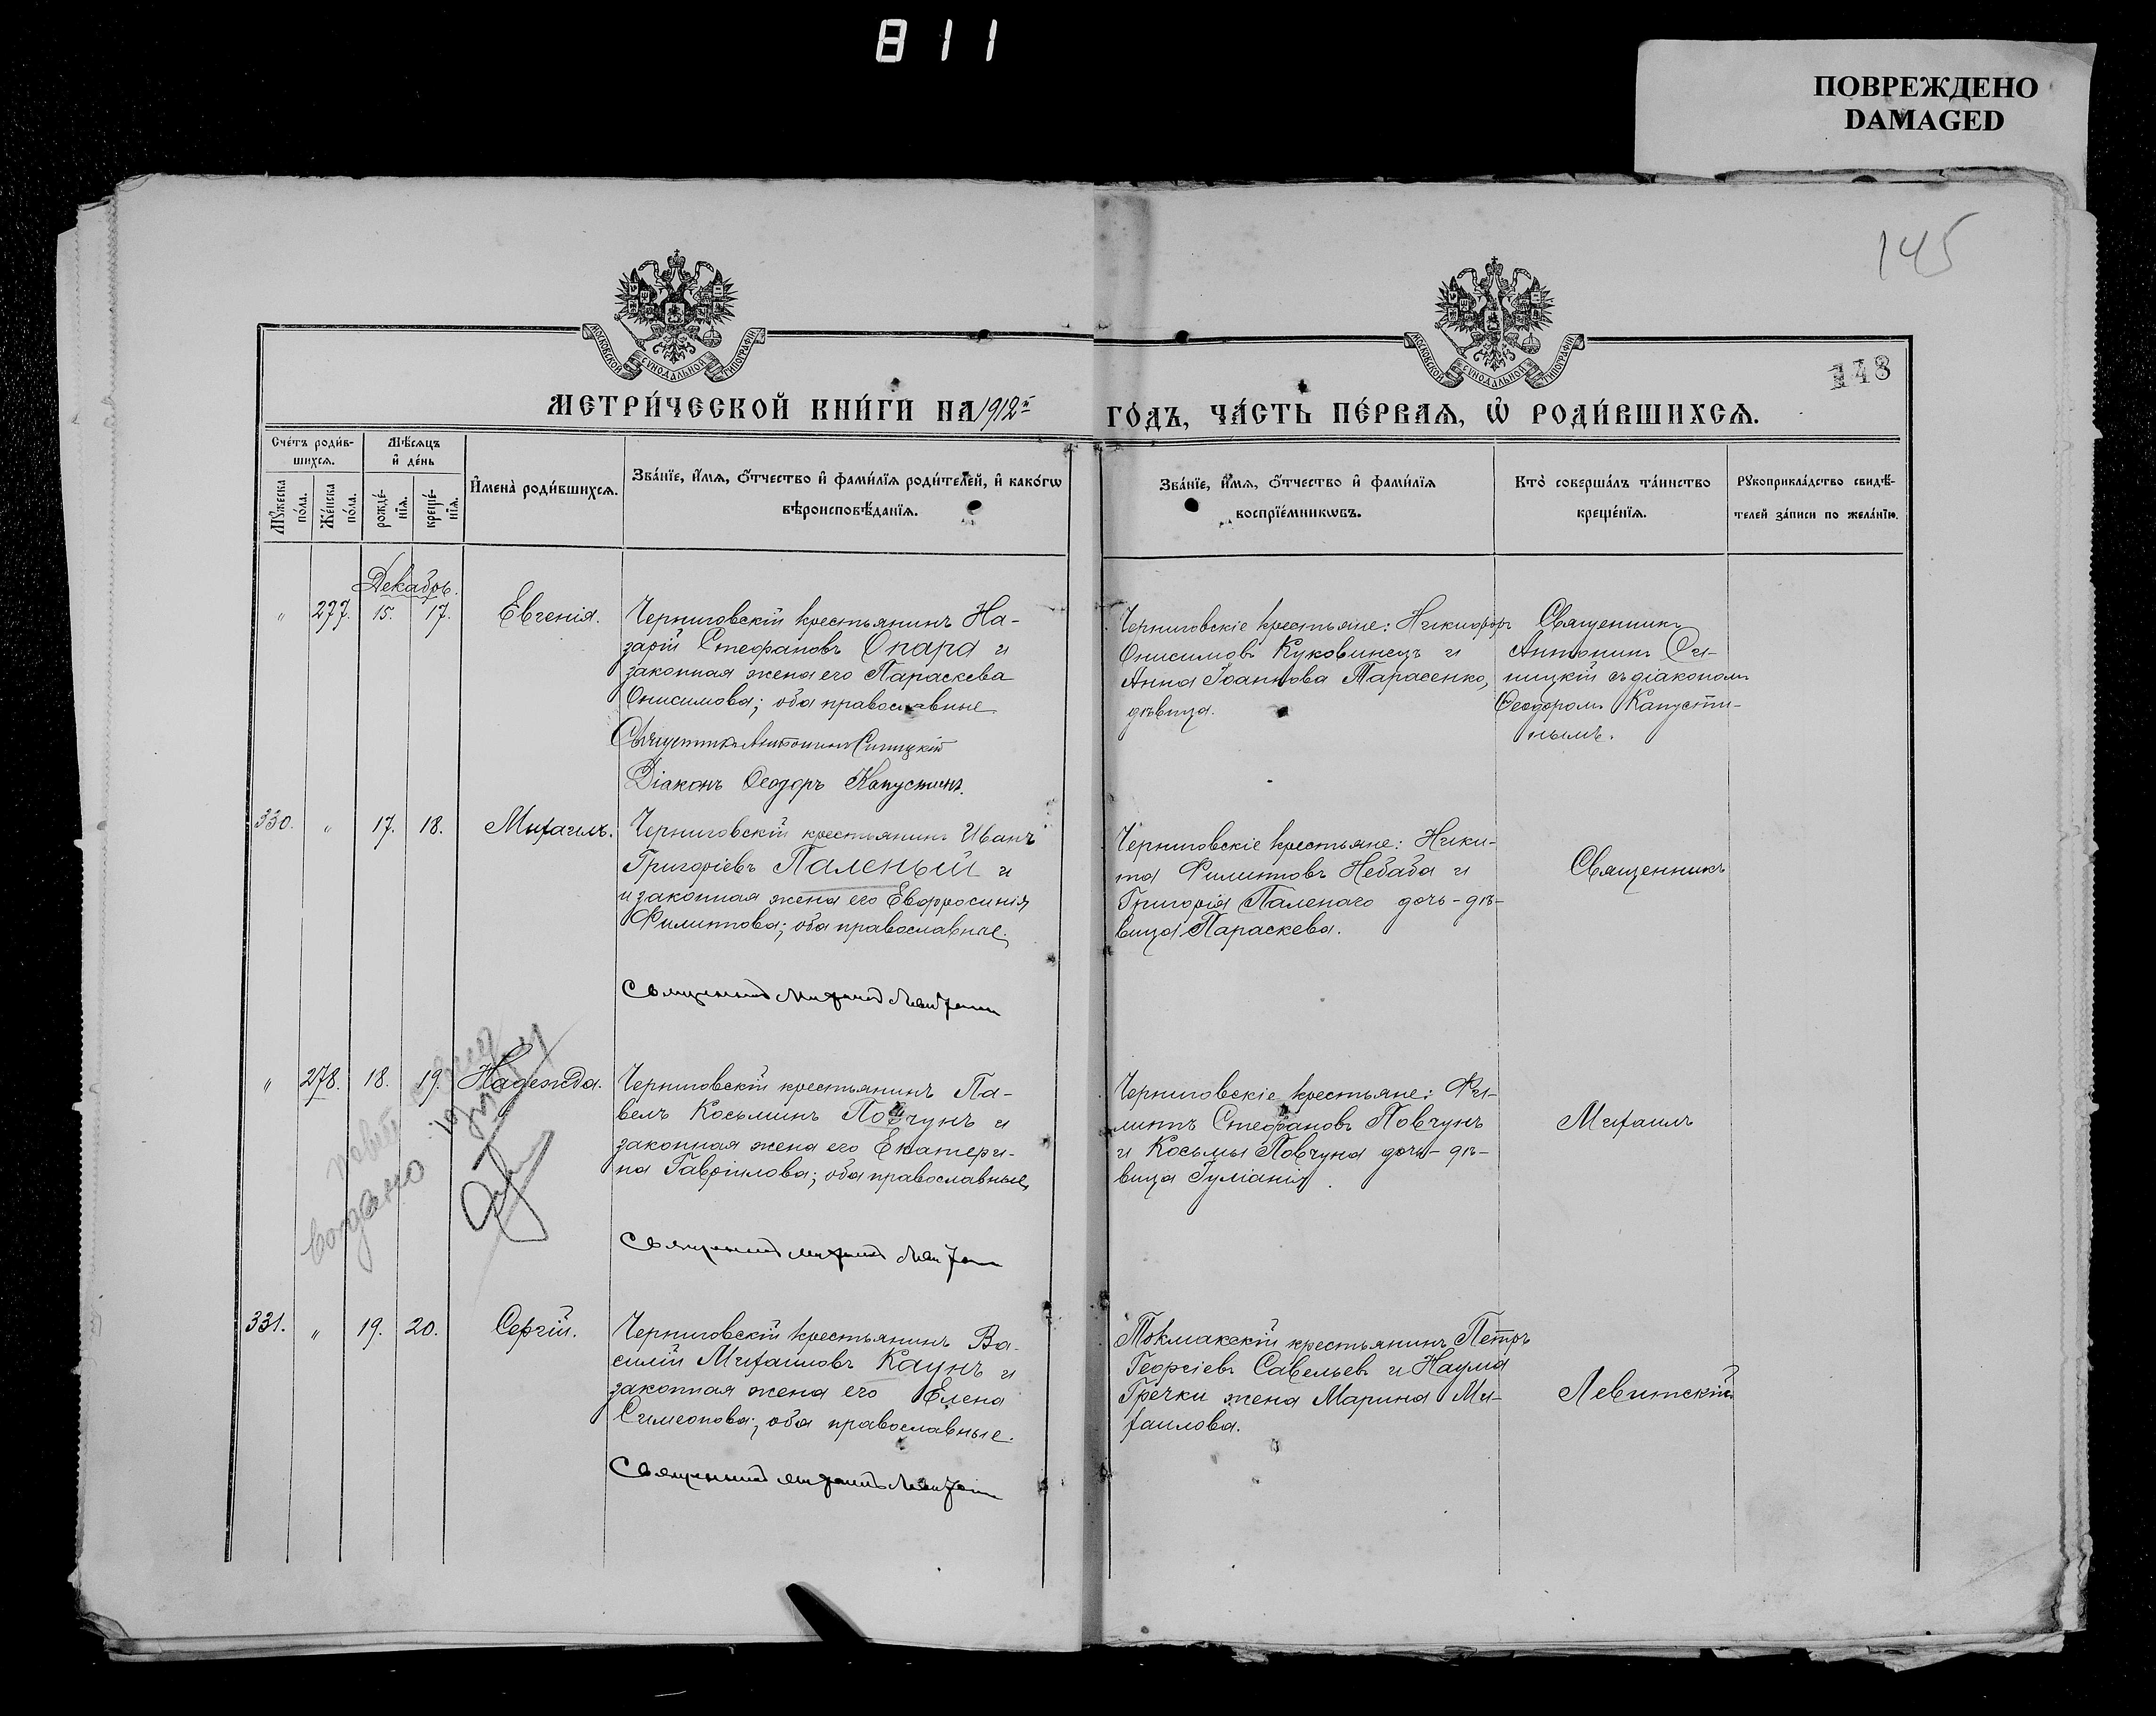 811
ПОВРЕЖДЕНО
DAMAGED
145
148
МОСКОВСКОЙ СѴНОДАЛЬНОЙ ТИПОГРАФІИ
МОСКОВСКОЙ СѴНОДАЛЬНОЙ ТИПОГРАФІИ
МЕТРИ́ЧЕСКОЙ КНИ́ГИ НА 1912й
ГО́ДЪ, ЧА́СТЬ ПЕ́РВАѦ, Ѡ҆ РОДИ́ВШИХСѦ.
Сче́тъ роди́в-
шихсѧ.
Мꙋжеска
по́ла.
Же́нска
по́ла.
Мѣ́сѧцъ
и҆ де́нь
рожде́-
нїѧ.
креще́-
нїѧ.
И҆мена̀ роди́вшихсѧ.
Зва́нїе, и҆́мѧ, ѻ҆́тчество и҆ фами́лїѧ роди́телей, и҆ како́гѡ
вѣроисповѣ́данїѧ.
Зва́нїе, и҆́мѧ, ѻ҆́тчество и҆ фами́лїѧ
воспрїе́мникѡвъ.
Кто̀ соверша́лъ та́инство
креще́нїѧ.
Рꙋкоприкла́дство свидѣ́-
телей за́писи по жела́нїю.
Декабрь.
" 277. 15. 17. Евгенія.
Черниговскій крестьянинъ На-
зарій Стефановъ Опара и
законная жена его Параскева
Онисимова; оба православные
Священникъ Антонинъ Синицкій
Діаконъ Ѳеодоръ Капустинъ.
Черниговскіе крестьяне: Никифоръ
Онисимовъ Куковинецъ и
Анна Іоаннова Тарасенко,
дѣвица.
Священникъ
Антонинъ Си-
ницкій съ діакономъ
Ѳеодоромъ Капусти-
нымъ.
330. " 17. 18. Михаилъ.
Черниговскій крестьянинъ Иванъ
Григоріевъ Паленый и
и законная жена его Евфросинія
Филиппова; оба православные.
Священникъ Михаилъ Левитскій
Черниговскіе крестьяне: Ники-
та Филипповъ Небаба и
Григорія Паленаго дочь-дѣ-
вица Параскева.
Священникъ
" 278. 18. 19. Надежда.
Черниговскій крестьянинъ Па-
велъ Косьминъ Повчунъ и
законная жена его Екатери-
на Гавріилова; оба православные,
Священникъ Михаилъ Левитскій
Черниговскіе крестьяне: Фи-
липпъ Стефановъ Повчунъ
и Косьмы Повчуна дочь-дѣ-
вица Іуліанія.
Михаилъ
331. " 19. 20. Сергій.
Черниговскій крестьянинъ Ва-
силій Михаиловъ Каунъ и
законная жена его Елена
Симеонова; оба православные.
Священникъ Михаилъ Левитскій
Токмакскій крестьянинъ Петръ
Георгіевъ Савельевъ и Наума
Гречки жена Марина Ми-
хаилова.
Левитскій